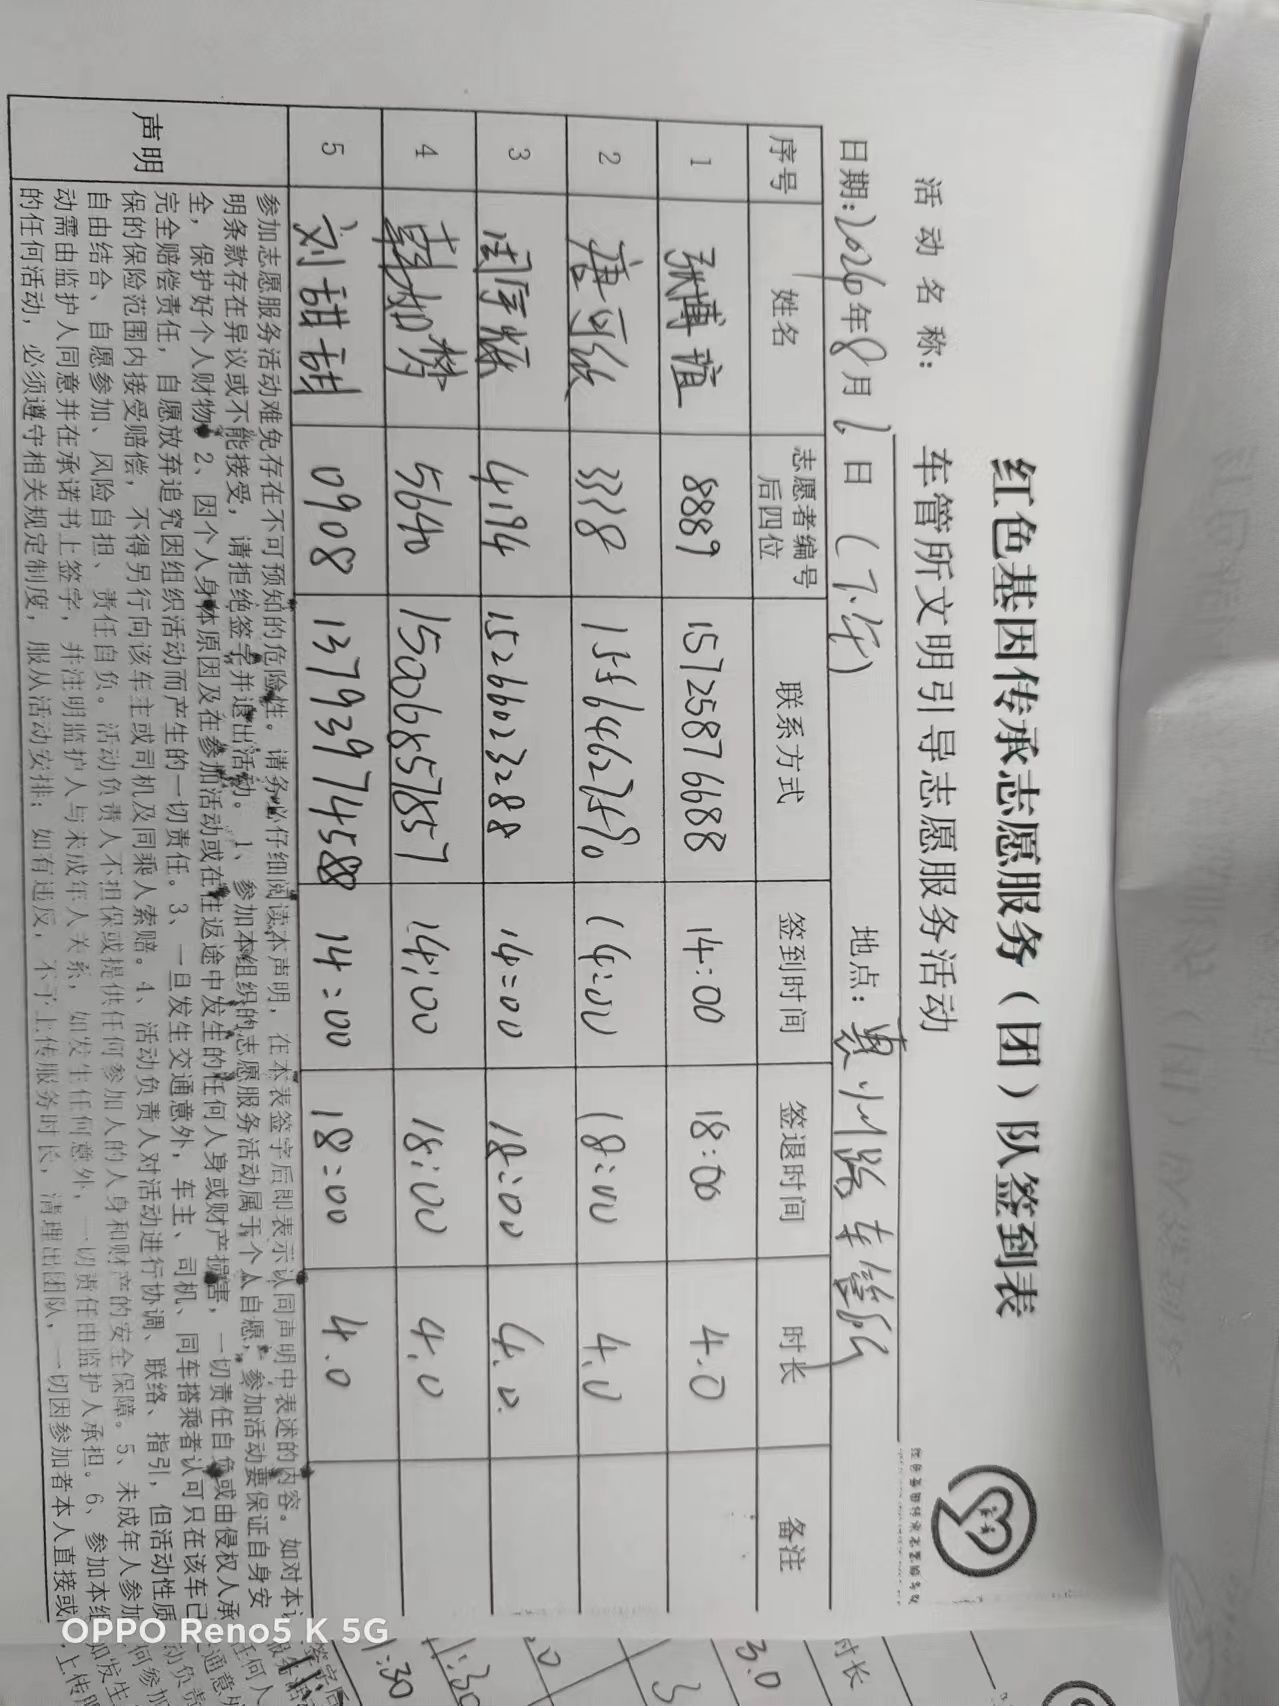 红色基因传承志愿服务（团）队签到表
活动名称： 车管所文明引导志愿服务活动
日期：2024年8月1日（下午） 地点：惠州路车管所
序号 姓名 志愿者编号后四位 联系方式 签到时间 签退时间 时长 备注
1 张博谊 8889 15725876688 14:00 18:00 4.0
2 唐可欣 3328 14:00 18:00 4.0
3 闫学焱 4194 15266023288 14:00 18:00 4.0
4 韩如梦 5640 15006857857 14:00 18:00 4.0
5 刘甜甜 0908 13793974588 14:00 18:00 4.0
声明
参加志愿服务活动难免存在不可预知的危险性。请务必仔细阅读本声明，在本表签字后即表示认同声明中表述的内容。如对本
明条款存在异议或不能接受，请拒绝签字并退出活动。1、参加本组织的志愿服务活动属于个人自愿，参加活动要保证自身安
全，保护好个人财物。2、因个人身体原因及在参加活动或在往返途中发生的任何人身或财产损害，一切责任自负或由侵权人承
完全赔偿责任，自愿放弃追究因组织活动而产生的一切责任。3、一旦发生交通意外，车主、司机、同车搭乘者认可只在该车已
保的保险范围内接受赔偿，不得另行向该车主或司机及同乘人索赔。4、活动负责人对活动进行协调、联络、指引，但活动性质
自由结合、自愿参加、风险自担、责任自负。活动负责人不担保或提供任何参加人的人身和财产的安全保障。5、未成年人参加
动需由监护人同意并在承诺书上签字，并注明监护人与未成年人关系，如发生任何意外，一切责任由监护人承担。6、参加本组
的任何活动，必须遵守相关规定制度，服从活动安排；如有违反，不予上传服务时长，清理出团队，一切因参加者本人直接或
时长
3.0
OPPO Reno5 K 5G